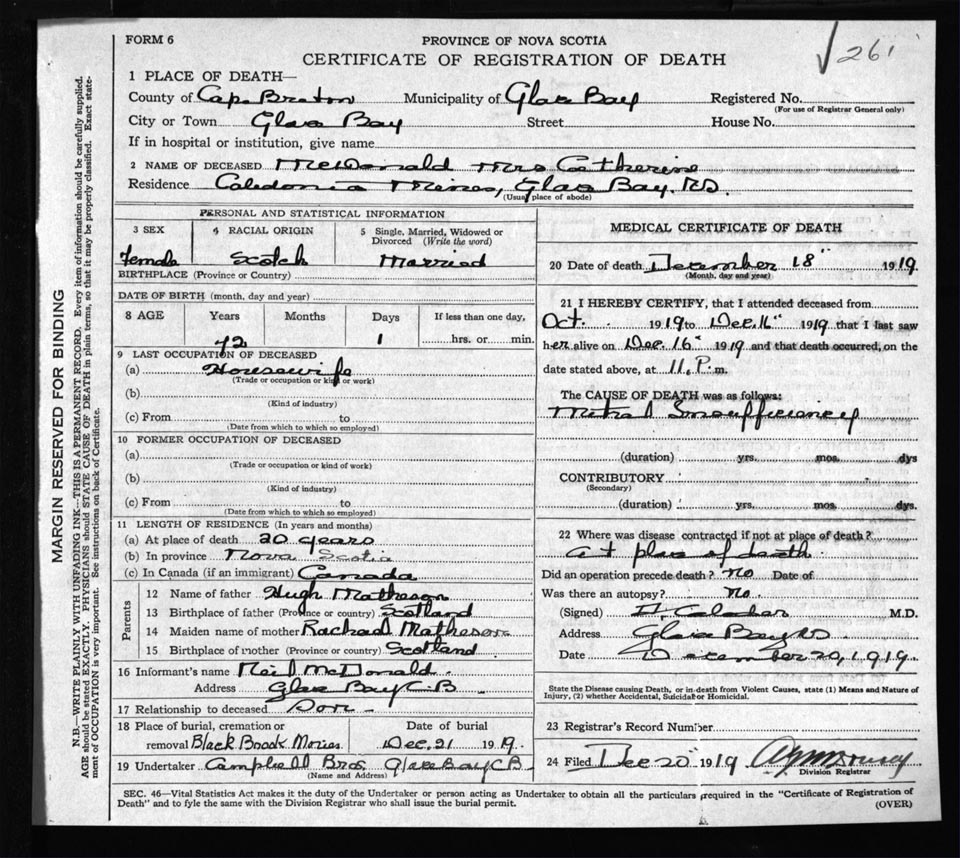 FORM 6
PROVINCE OF NOVA SCOTIA
261
CERTIFICATE OF REGISTRATION OF DEATH
1 PLACE OF DEATH—
County of Cape Breton Municipality of Glace Bay Registered No.
(For use of Registrar General only)
City or Town Glace Bay Street House No.
If in hospital or institution, give name
2 NAME OF DECEASED McDonald Mrs Catherine
Residence Caledonia Mines, Glace Bay. NS.
(Usual place of abode)
PERSONAL AND STATISTICAL INFORMATION
3 SEX 4 RACIAL ORIGIN 5 Single, Married, Widowed or Divorced (Write the word)
Female Scotch Married
BIRTHPLACE (Province or Country)
DATE OF BIRTH (month, day and year)
8 AGE Years Months Days If less than one day,
72 1 hrs. or min.
9 LAST OCCUPATION OF DECEASED
(a) Housewife
(Trade or occupation or kind of work)
(b)
(Kind of industry)
(c) From to
(Date from which to which so employed)
10 FORMER OCCUPATION OF DECEASED
(a)
(Trade or occupation or kind of work)
(b)
(Kind of industry)
(c) From to
(Date from which to which so employed)
11 LENGTH OF RESIDENCE (In years and months)
(a) At place of death 20 years
(b) In province Nova Scotia
(c) In Canada (if an immigrant) Canada
Parents
12 Name of father Hugh Matheson
13 Birthplace of father (Province or country) Scotland
14 Maiden name of mother Rachael Matheson
15 Birthplace of mother (Province or country) Scotland
16 Informant's name Neil McDonald
Address Glace Bay C.B
17 Relationship to deceased Son
18 Place of burial, cremation or Date of burial
removal Black Brook Morien Dec. 21 1919.
19 Undertaker Campbell Bros. Glace Bay C B
(Name and Address)
MEDICAL CERTIFICATE OF DEATH
20 Date of death December 18" 1919
(Month, day and year)
21 I HEREBY CERTIFY, that I attended deceased from
Oct. 1919 to Dec. 16" 1919 that I last saw
her alive on Dec. 16" 1919 and that death occurred, on the
date stated above, at 11. P. m.
The CAUSE OF DEATH was as follows:
Mitral Insufficiency
(duration) yrs. mos. dys
CONTRIBUTORY
(Secondary)
(duration) yrs. mos. dys
22 Where was disease contracted if not at place of death?
at place of death
Did an operation precede death? no Date of
Was there an autopsy? no.
(Signed) M.D.
Address Glace Bay NS
Date December 20, 1919.
State the Disease causing Death, or in death from Violent Causes, state (1) Means and Nature of
Injury, (2) whether Accidental, Suicidal or Homicidal.
23 Registrar's Record Number
24 Filed Dec 20" 1919
Division Registrar
SEC. 46—Vital Statistics Act makes it the duty of the Undertaker or person acting as Undertaker to obtain all the particulars required in the "Certificate of Registration of
Death" and to fyle the same with the Division Registrar who shall issue the burial permit.
(OVER)
MARGIN RESERVED FOR BINDING
N.B.—WRITE PLAINLY WITH UNFADING INK—THIS IS A PERMANENT RECORD. Every item of information should be carefully supplied.
AGE should be stated EXACTLY. PHYSICIANS should STATE CAUSE OF DEATH in plain terms, so that it may be properly classified. Exact state-
ment of OCCUPATION is very important. See instructions on back of Certificate.